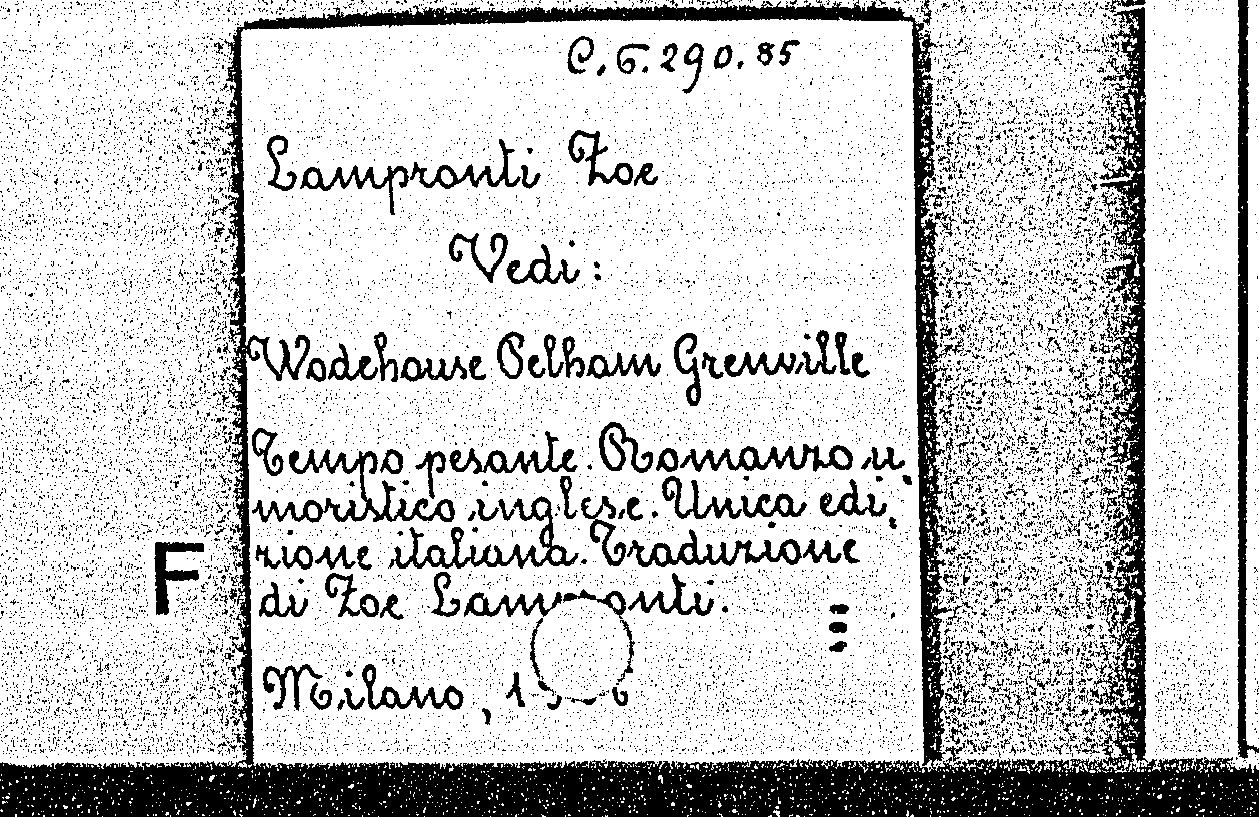 C.6.290.85
Lampronti Zoe
Vedi:
Wodehouse Pelham Grenville
Tempo pesante. Romanzo u
moristico inglese. Unica edi,
zione italiana. Traduzione
di Zoe Lampronti.
Milano,
F